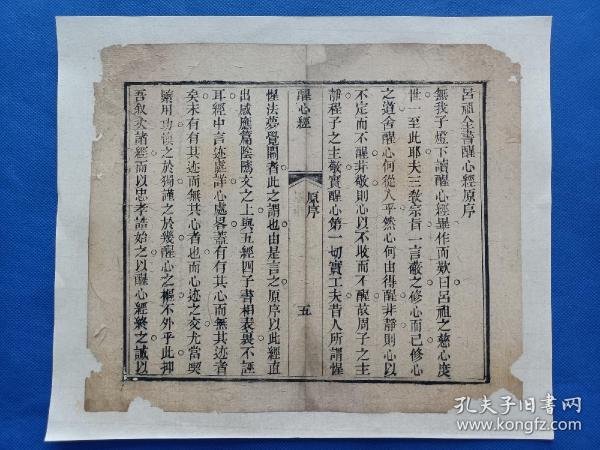 呂祖全書醒心經原序
無我子燈下讀醒心經畢作而歎曰呂祖之慈心度
世一至此耶夫三敎宗旨一言蔽之修心而已修心
之道舍醒心何從入乎然心何由得醒非靜則心以
不定而不醒非敬則心以不收而不醒故周子之主
靜程子之主敬實醒心第一切實工夫昔人所謂惺
醒心經
原序
五
惺法夢覺關者此之謂也由是言之原序以此經直
出感應篇陰隲文之上與五經四子書相表裏不誣
耳經中言迹處詳心處畧蓋有有其心而無其迹者
矣未有有其迹而無其心者也而心迹之交尤當喫
緊用功慎之於獨謹之於幾醒心之樞不外乎此抑
吾叙次諸經而以忠孝誥始之以醒心經終之誠以
孔夫子旧书网
www.kongfz.com